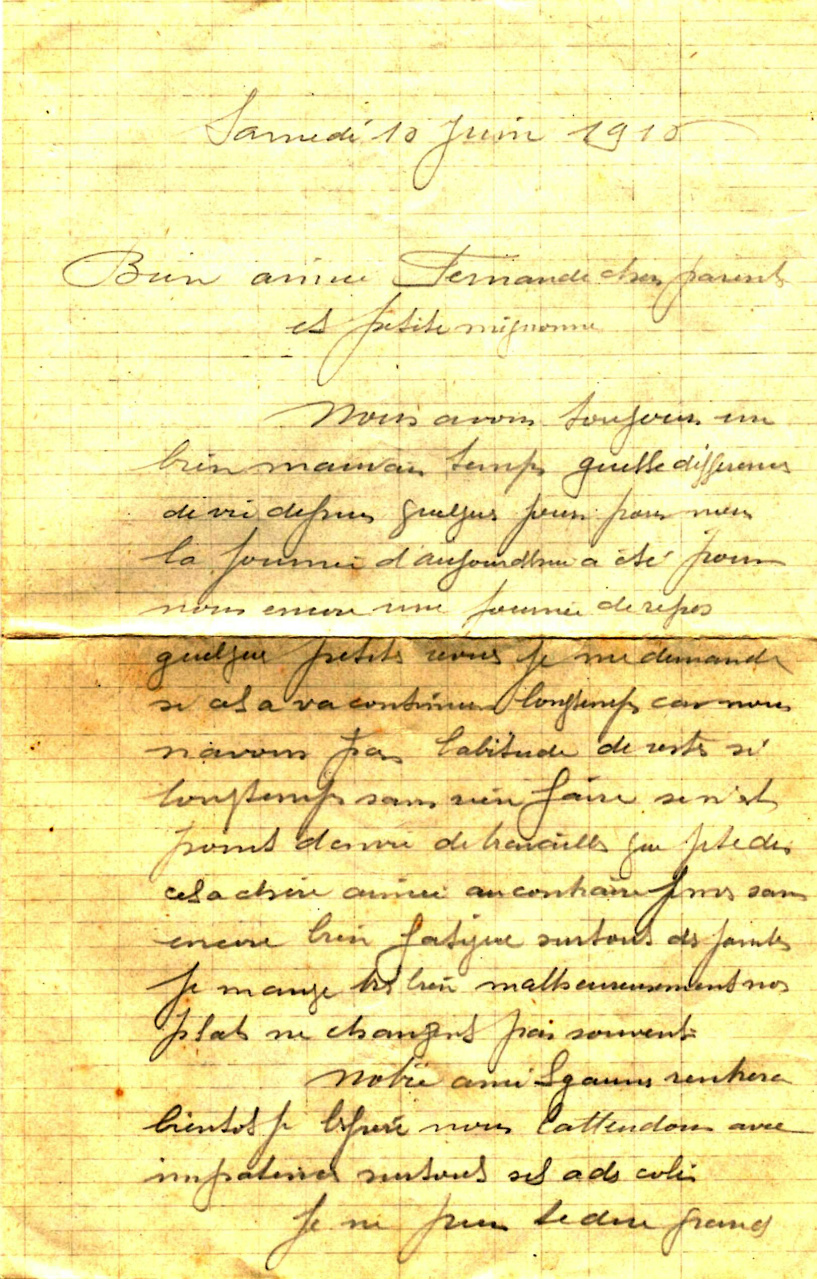 Samedi 10 Juin 1916
Bien aimée Fernande chers parents
et petite mignonne
Nous avons toujours un
bien mauvais temps quelle difference
de vie depuis quelques jours pour nous
la journée d'aujourdhui a été pour
nous encore une journée de repos
quelques petits je me demande
si cela va continuer longtemps car nous
navons pas labitude de rester si
longtemps sans rien faire se n'est
point denvie de travailler que je te dis
cela chère aimée au contraire je me sans
encore bien fatigue surtout des jambes
Je mange très bien malheureusement nos
plats ne changent pas souvent
Notre ami rentrera
bientot je lespère nous lattendons avec
impatience surtout colis
Je ne peux te dire grand